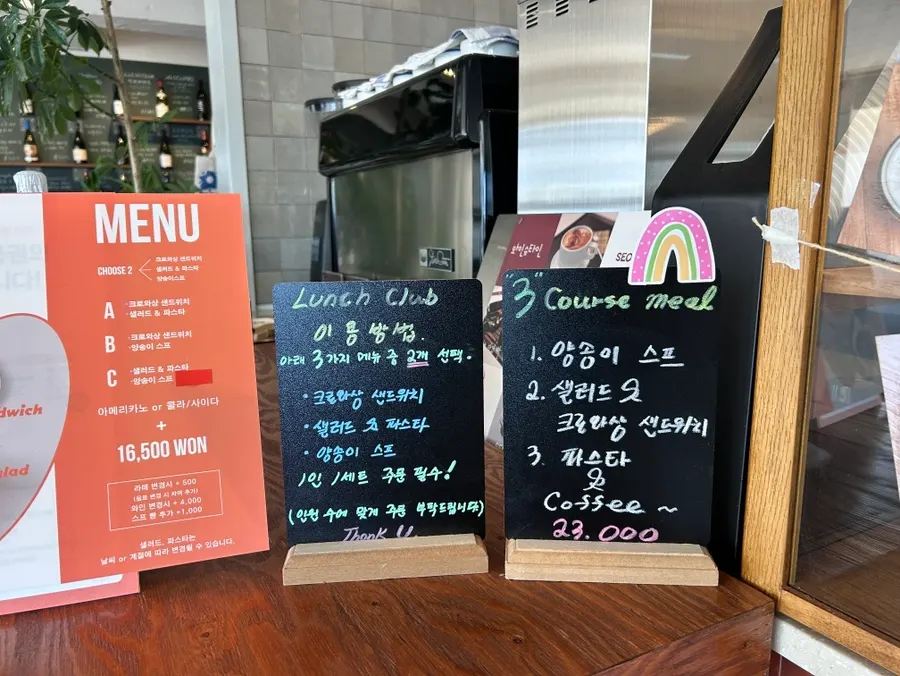 MENU
CHOOSE 2
크로와상 샌드위치
샐러드 & 파스타
양송이스프
A
·크로와상 샌드위치
·샐러드 & 파스타
B
·크로와상 샌드위치
·양송이 스프
C
·샐러드 & 파스타
·양송이 스프
아메리카노 or 콜라/사이다
+
16,500 WON
라떼 변경시 + 500
와인 변경시 + 4,000
스프 빵 추가 +1,000
샐러드, 파스타는
날씨 or 계절에 따라 변경될 수 있습니다.
dwich
Lunch Club
이용방법.
아래 3가지 메뉴 중 2개 선택.
· 크로와상 샌드위치
· 샐러드 & 파스타
· 양송이 스프
1인 1세트 주문 필수!
(인원 수에 맞게 주문 부탁드립니다)
Thank U
SEO
"3" Course meal
1. 양송이 스프
2. 샐러드 &
크로와상 샌드위치
3. 파스타
&
Coffee ~
23.000